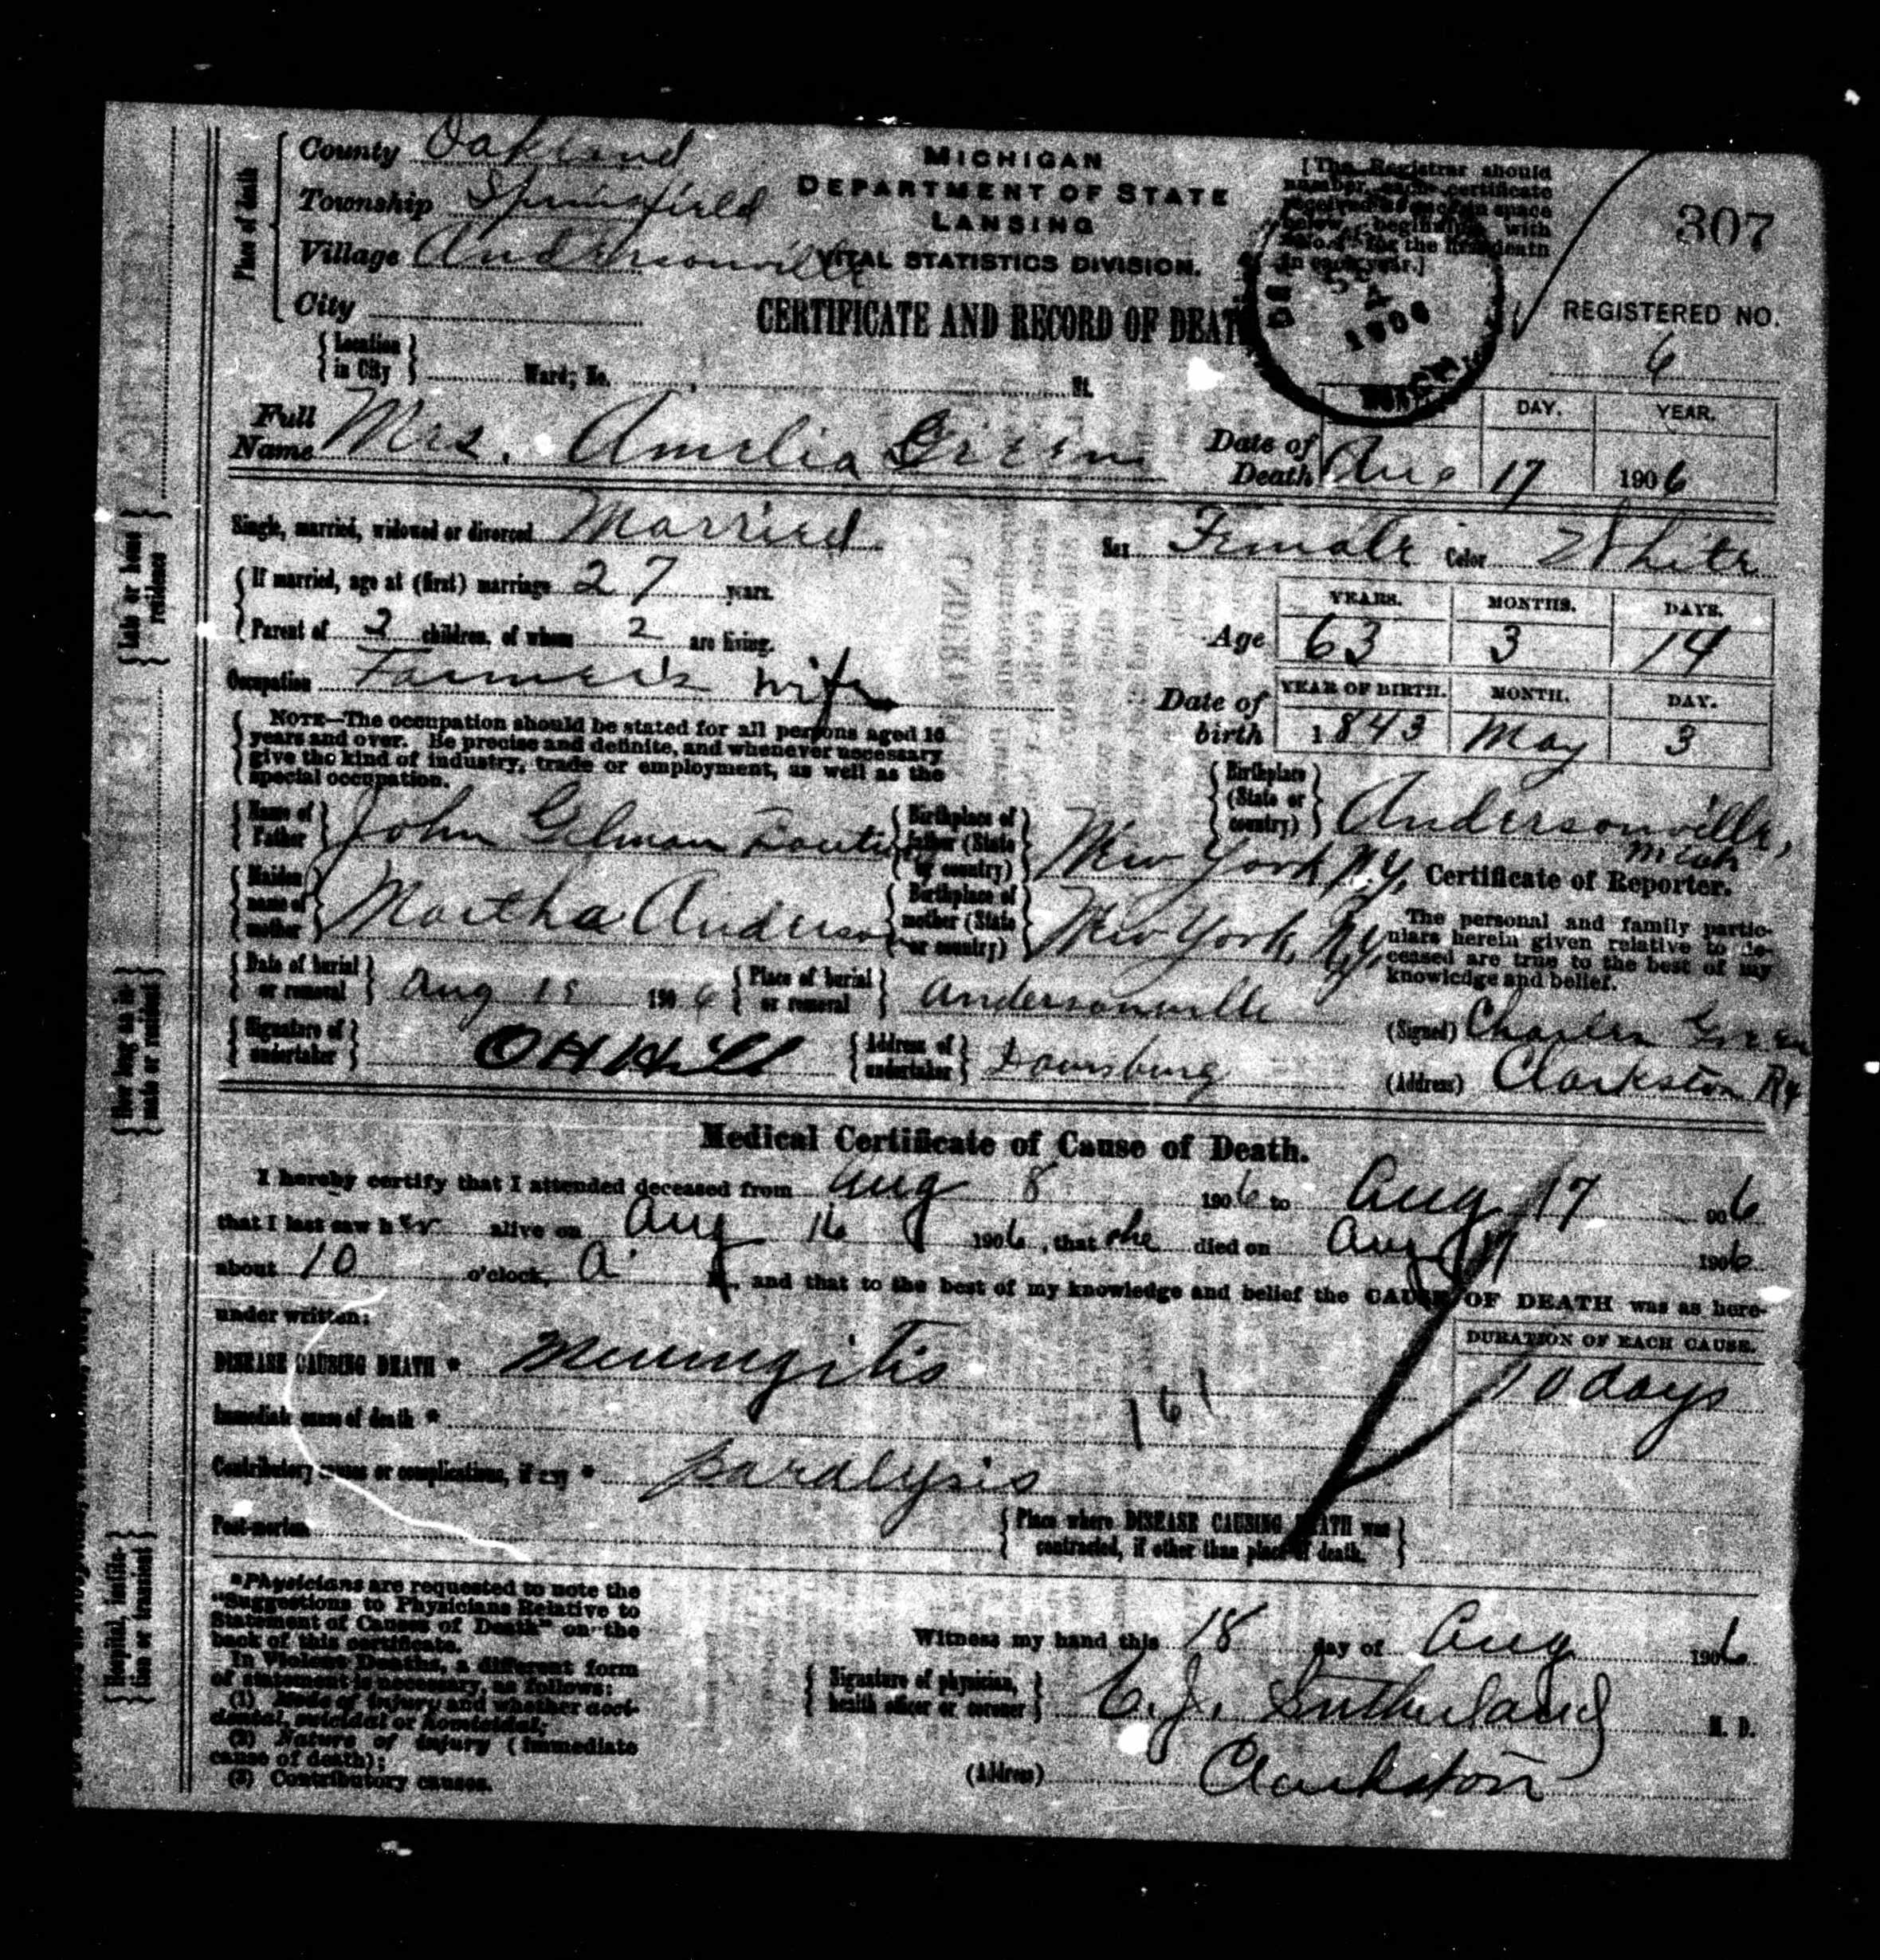 Place of death
County Oakland
Township Springfield
Village Andersonville
City
Location in City Ward; No. St.
MICHIGAN
DEPARTMENT OF STATE
LANSING
VITAL STATISTICS DIVISION.
CERTIFICATE AND RECORD OF DEATH
[The Registrar should
number each certificate
with
the death
in each year.]
1906
307
REGISTERED NO.
6
Full Name Mrs. Amelia Green
DAY. YEAR.
Date of Death Aug 17 1906
Single, married, widowed or divorced Married Sex Female Color White
If married, age at (first) marriage 27 years.
Parent of 2 children, of whom 2 are living.
YEARS. MONTHS. DAYS.
Age 63 3 14
Occupation Farmer's wife
YEAR OF BIRTH. MONTH. DAY.
Date of birth 1843 May 3
NOTE—The occupation should be stated for all persons aged 10
years and over. Be precise and definite, and whenever necessary
give the kind of industry, trade or employment, as well as the
special occupation.
Birthplace (State or country) Andersonville, Mich
Name of Father John Gilman
Birthplace of father (State or country) New York N.Y.
Maiden name of mother Martha Anderson
Birthplace of mother (State or country) New York, N.Y.
Certificate of Reporter.
The personal and family partic-
ulars herein given relative to de-
ceased are true to the best of my
knowledge and belief.
Date of burial or removal Aug 19 1906 Place of burial or removal Andersonville
(Signed) Charles Green
Signature of undertaker O H Hill Address of undertaker Davisburg
(Address) Clarkston
Medical Certificate of Cause of Death.
I hereby certify that I attended deceased from Aug 8 1906 to Aug 17 906
that I last saw her alive on Aug 16 1906, that she died on Aug 17 1906
about 10 o'clock, A. M. and that to the best of my knowledge and belief the CAUSE OF DEATH was as here-
under written:
DURATION OF EACH CAUSE.
DISEASE CAUSING DEATH * Meningitis 10 days
161
Immediate cause of death *
Contributory causes or complications, if any * paralysis
Post-mortem
Place where DISEASE CAUSING DEATH was
contracted, if other than place of death.
*Physicians are requested to note the
"Suggestions to Physicians Relative to
Statement of Causes of Death" on the
back of this certificate.
In Violent Deaths, a different form
of statement is necessary, as follows:
(1) Mode of injury and whether acci-
dental, suicidal or homicidal;
(2) Nature of injury (immediate
cause of death);
(3) Contributory causes.
Witness my hand this 18 day of Aug 1906
Signature of physician, health officer or coroner C. J. Sutherland M. D.
(Address) Clarkston
Late or home residence
How long an in-mate or resident
Hospital, institu-tion or transient